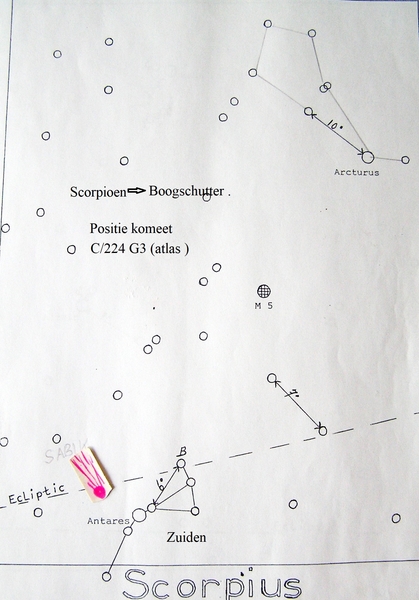 10°
Arcturus
Scorpioen ⇨ Boogschutter .
Positie komeet
C/224 G3 (atlas )
M 5
7°
SABIK
B
6°
Ecliptic
Antares
Zuiden
Scorpius